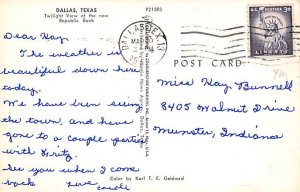 DALLAS, TEXAS
Twilight View of the new
Republic Bank
P21592
DALLAS, TEX
3¢
POST CARD
Dear Kay,
The weather is
beautiful down here
today.
We have been seeing
the town, and have
gone to a couple parties
with Fritz.
See you when I come
back Love
Carole
Miss Kay Bunnell
8405 Walnut Drive
Munster, Indiana
Color by Karl T. E. Gebhard